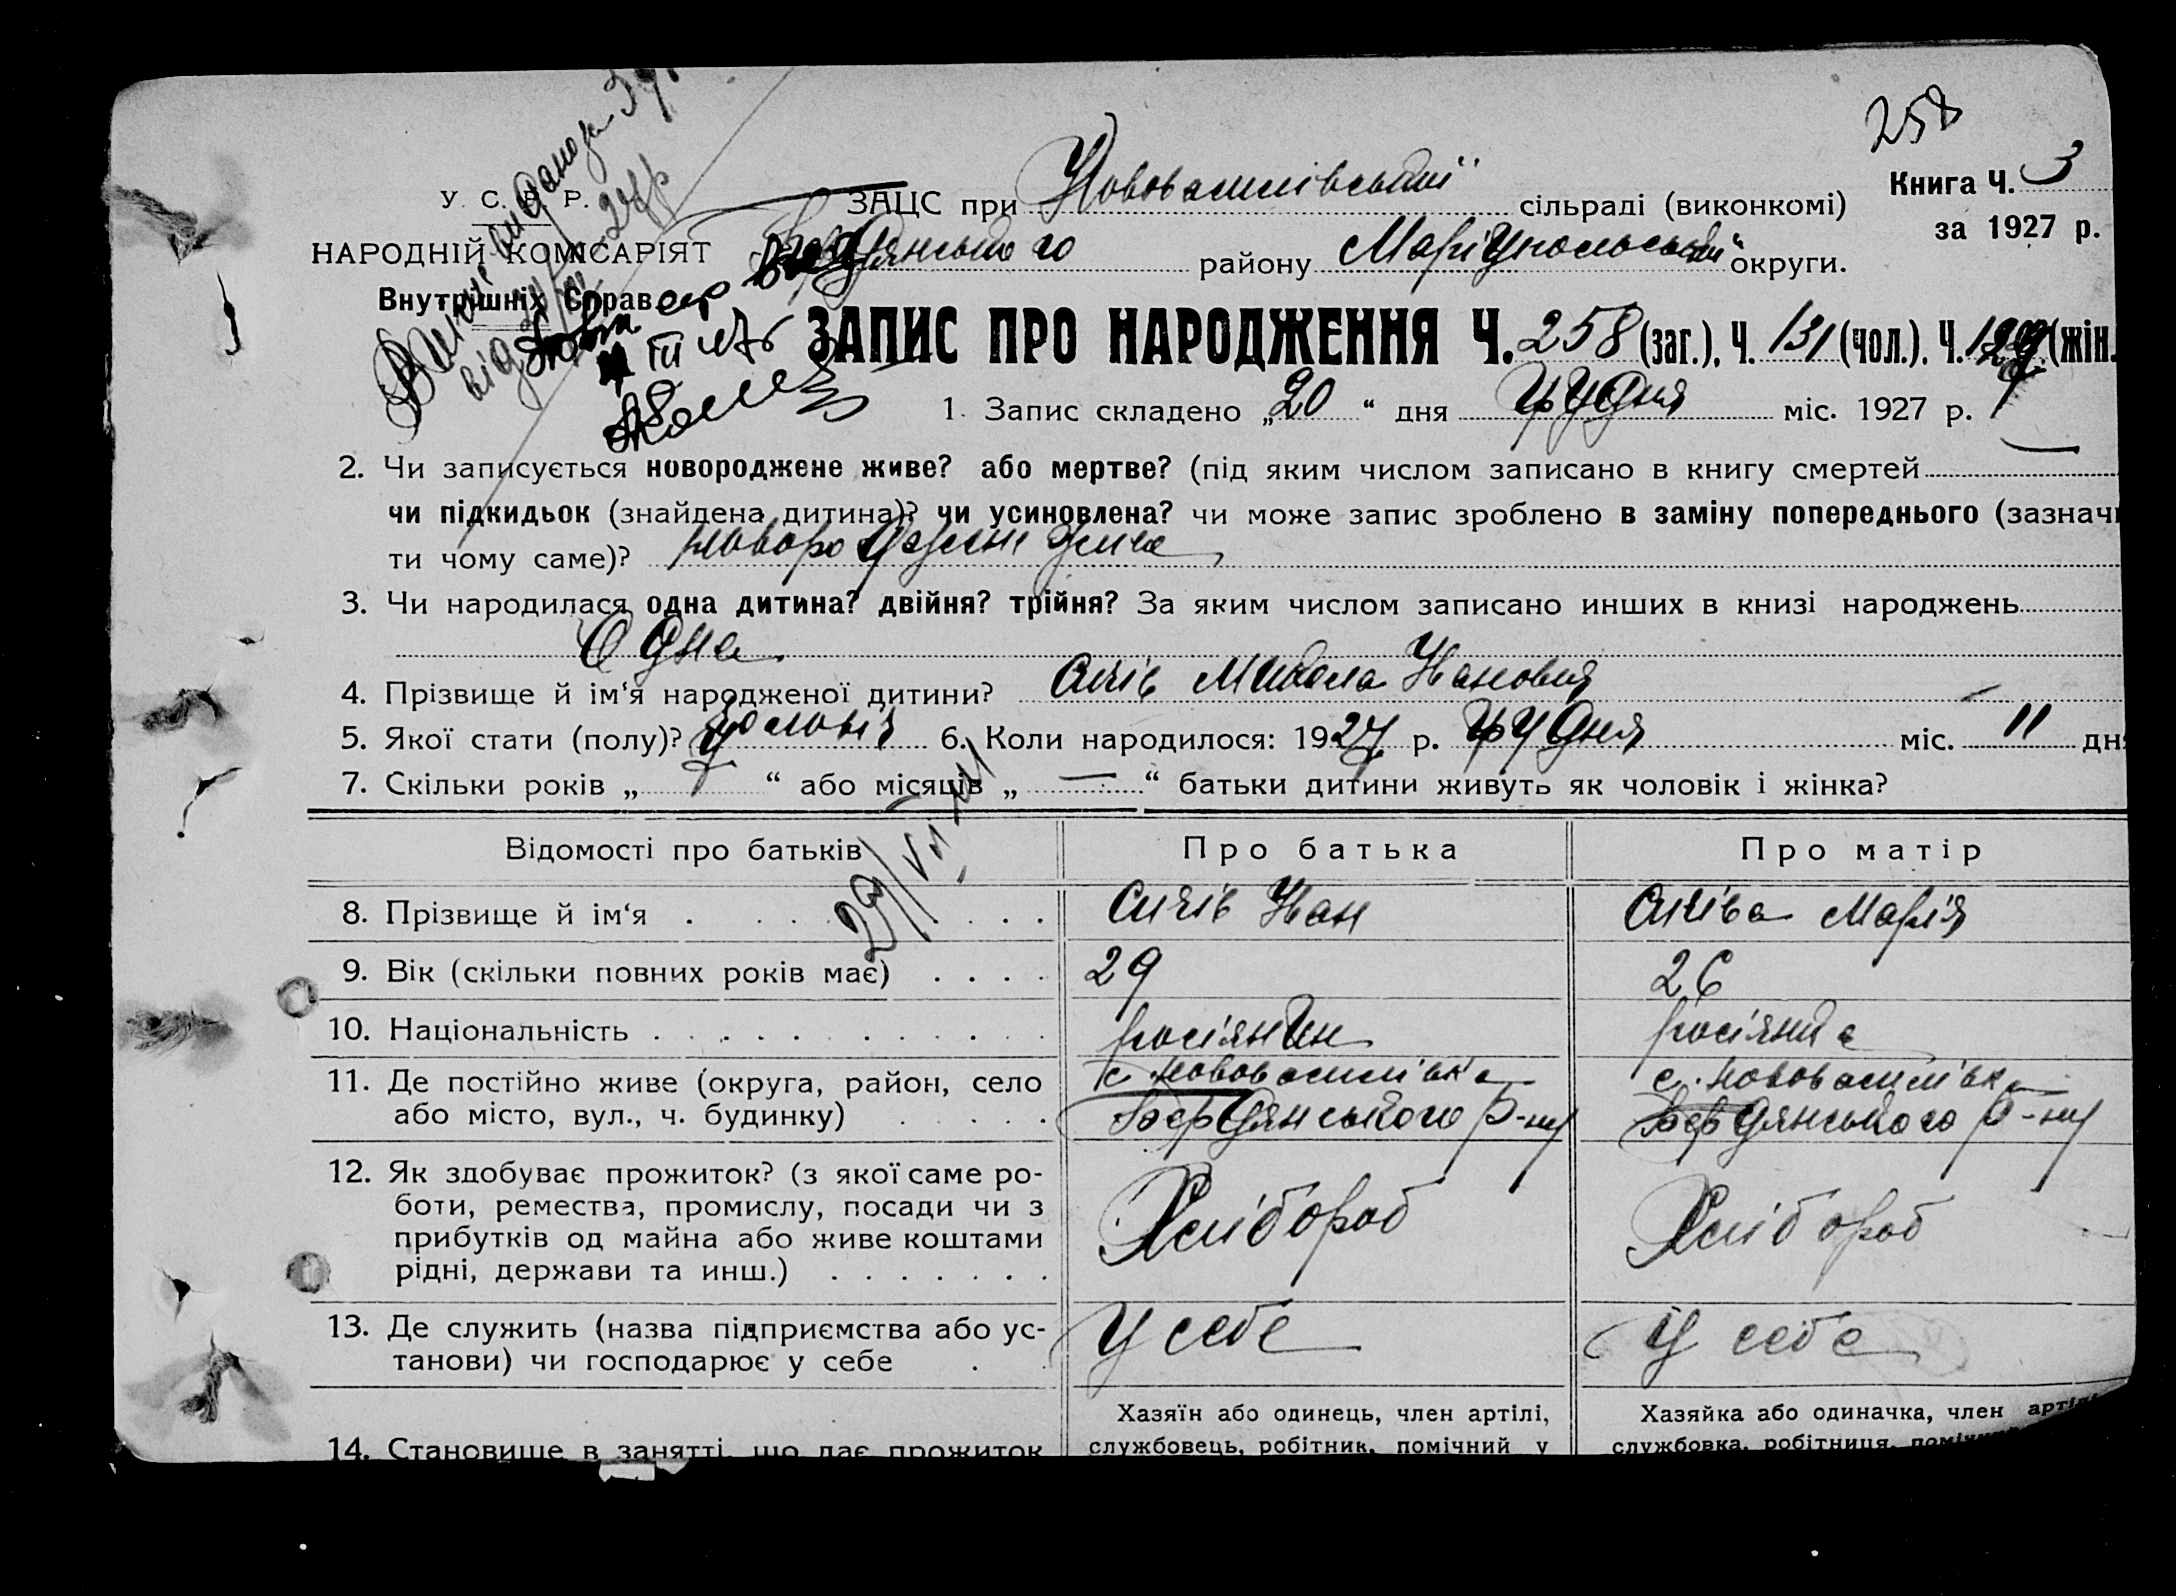 258
Книга Ч. 3
за 1927 р.
У. С. Р. Р.
ЗАЦС при Нововасилівській сільраді (виконкомі)
НАРОДНІЙ КОМІСАРІЯТ
Внутрішніх Справ
Бердянського району Маріупольської округи.
ЗАПИС ПРО НАРОДЖЕННЯ Ч. 258 (заг.), Ч. 131 (чол.), Ч. (жін.
1. Запис складено „20“ дня грудня міс. 1927 р.
2. Чи записується новороджене живе? або мертве? (під яким числом записано в книгу смертей —
чи підкидьок (знайдена дитина)? чи усиновлена? чи може запис зроблено в заміну попереднього (зазначи
ти чому саме)? новороджене живе
3. Чи народилася одна дитина? двійня? трійня? За яким числом записано инших в книзі народжень
Одна
4. Прізвище й ім‘я народженої дитини? Сичів Микола Іванович
5. Якої стати (полу)? чоловіч 6. Коли народилося: 1927 р. грудня міс. 11 дня
7. Скільки років „ “ або місяців „ — “ батьки дитини живуть як чоловік і жінка?
29/VII
Відомості про батьків Про батька Про матір
8. Прізвище й ім‘я . . . Сичів Іван Сичіва Марія
9. Вік (скільки повних років має) . . . . 29 26
10. Національність . . . росіянин росіянка
11. Де постійно живе (округа, район, село с. Нововасилівка с. Нововасилівка
або місто, вул., ч. будинку) . . . . . Бердянського р-ну Бердянського р-ну
12. Як здобуває прожиток? (з якої саме ро-
боти, ремества, промислу, посади чи з Хлібороб Хлібороб
прибутків од майна або живе коштами
рідні, держави та инш.) . . . . . . .
13. Де служить (назва підприємства або ус- У себе У себе
танови) чи господарює у себе . .
Хазяїн або одинець, член артілі, Хазяйка або одиначка, член артілі
14. Становище в занятті, що дає прожиток службовець, робітник, помічний у службовка, робітниця, помічна